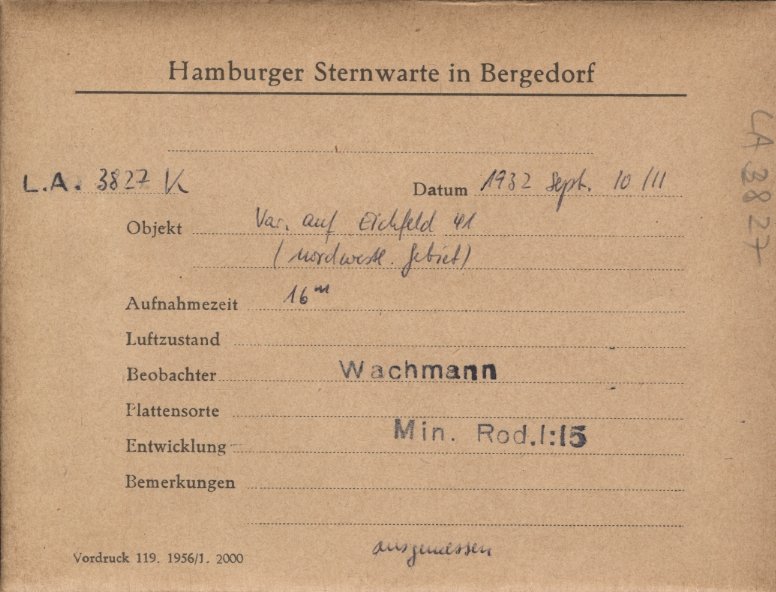 Hamburger Sternwarte in Bergedorf
L.A. 3827 K
Datum 1932 Sept. 10/11
Objekt Var. auf Eichfeld 41
(nordwestl. Gebiet)
Aufnahmezeit 16m
Luftzustand
Beobachter Wachmann
Plattensorte
Entwicklung Min. Rod. 1:15
Bemerkungen
ausgemessen
Vordruck 119. 1956/1. 2000
LA 3827